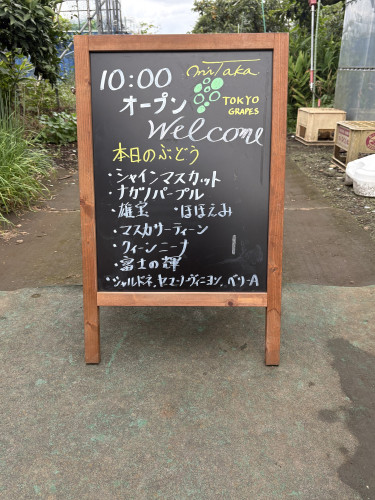 10:00
オープン
miTaka
TOKYO
GRAPES
Welcome
本日のぶどう
・シャインマスカット
・ナガノパープル
・雄宝 ・ほほえみ
・マスカサーティーン
・クイーンニーナ
・富士の輝
・シャルドネ,ヤマソーヴィニヨン,ベリーA